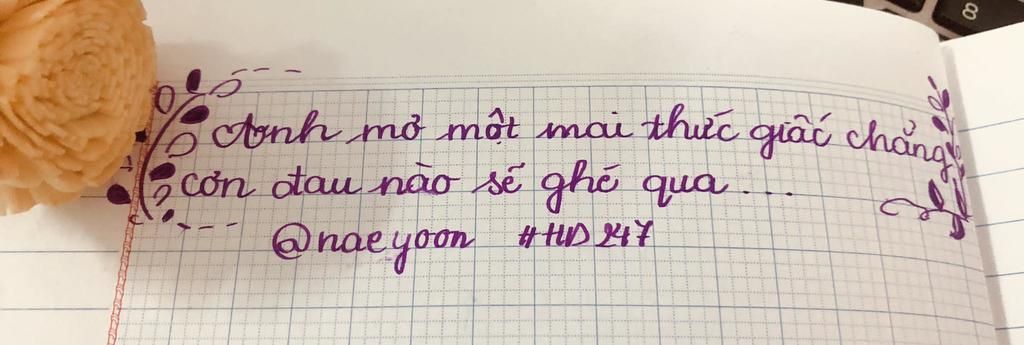 Anh mơ một mai thức giấc chẳng
cơn đau nào sẽ ghé qua...
@naeyoon #HD247
8